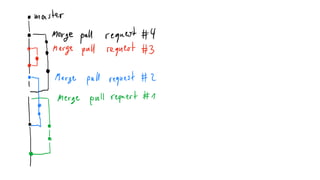 master
Merge pull request #4
Merge pull request #3
Merge pull request #2
Merge pull request #1